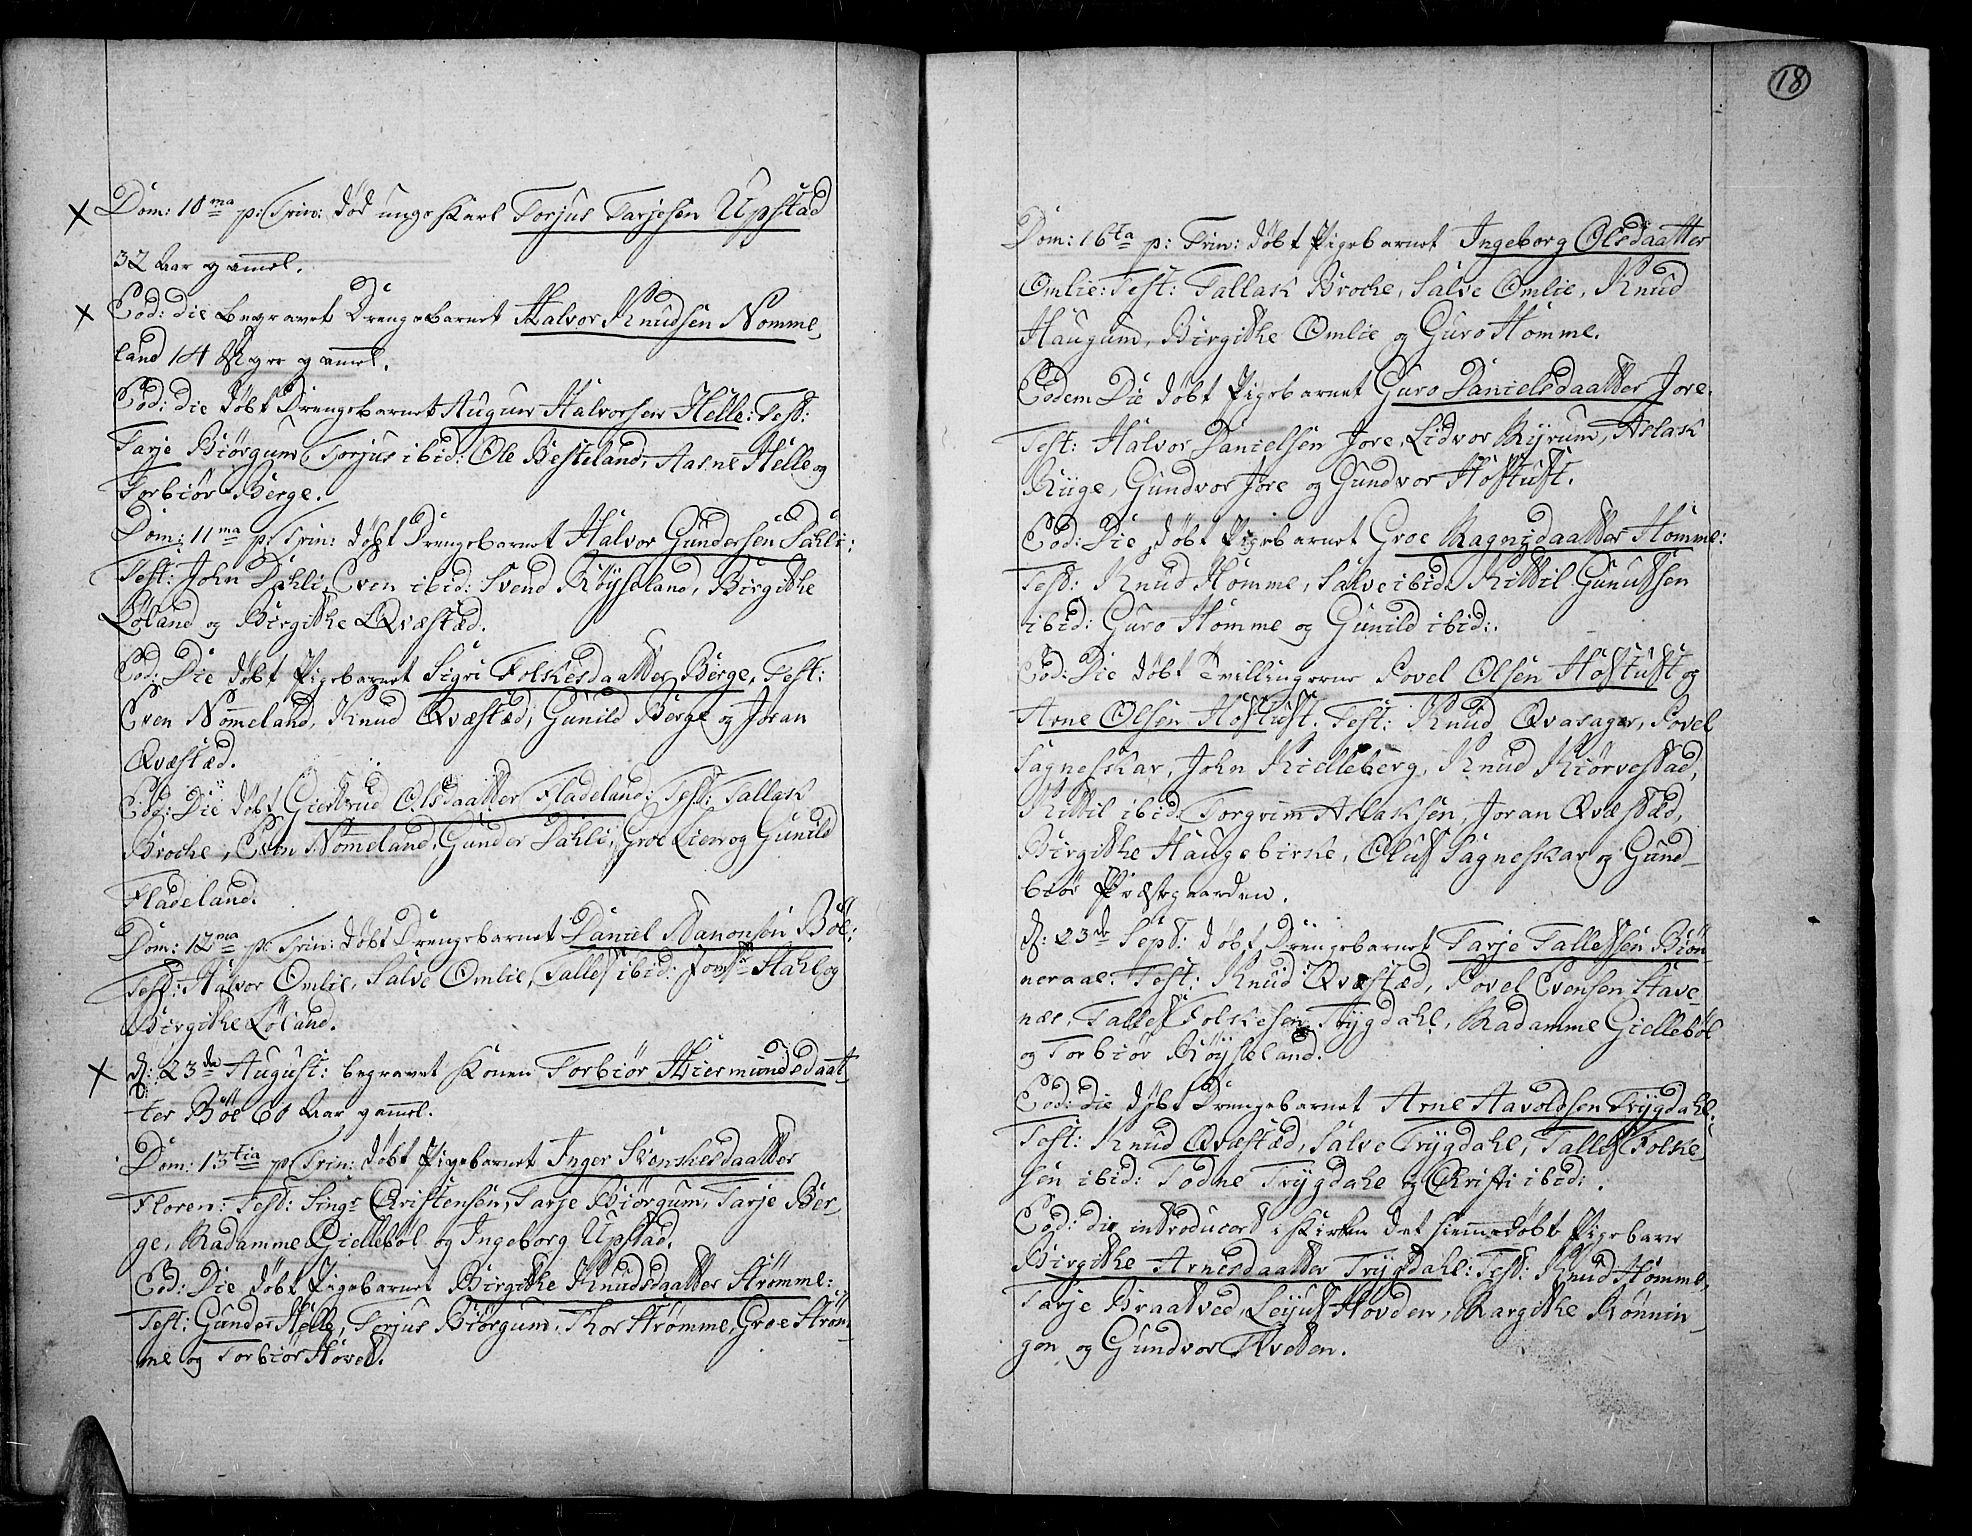 Dom: 10ma p: Trin: død unge Karl Torjus Tarjesen Upstad
32 Aar gamel.
Eod: die begravet Drengebarnet Halvor Knudsen Nomme,
land 14 Uger gamel.
Eod: die døbt Drengebarnet Augun Halvorsen Helle: Test:
Tarje Biørgum, Torjus ibid: Ole Besteland, Aasne Helle og
Torbiør Berge.
Dom: 11ma p: Trin: døbt Drengebarnet Halvor Gundersen Dahli:
Test: John Dahli, Even ibid: Svend Røyseland, Birgithe
Løland og Birgithe Qvæstæd.
Eod: Die døbt Pigebarnet Sigri Folkesdaatter Berge, Test:
Even Nommeland, Knud Qvæstæd, Gunild Berge og Joran
Qvæstæd.
Eod: Die døbt Giertrud Olsdaatter Fladeland: Test: Tallak
Broche, Even Nommeland, Gunder Dahli, Groe Lien og Gunild
Fladeland.
Dom: 12ma p: Trin: døbt Drengebarnet Daniel Aanonsen Bøl:
Test: Halvor Omlie, Salve Omlie, Tallef ibid: Stahl og
Birgithe Løland.
d: 23de August: begravet Konen Torbiør Hiermundsdaat,
ter Bøl 60 Aar gamel.
Dom: 13tia p Trin: døbt Pigebarnet Inger Svenkesdaatter
Floren: Test: Singr Christensen, Tarje Biørgum, Tarje Ber,
ge, Madamme Giellebøl og Ingeborg Upstad.
Eod: Die døbt Pigebarnet Birgithe Knudsdaatter Strømme:
Test: Gunder Helle, Torjus Biørgum, Thor Strømme, Groe Strøm,
me og Torbiør Høvet.
18
Dom: 16ta p: Trin: døbt Pigebarnet Ingeborg Olsdaatter
Omlie: Test: Tallak Broche, Salve Omlie, Knud
Haugum, Birgithe Omlie og Guro Homme.
Eodem Die døbt Pigebarnet Guro Danielsdaatter Jore.
Test: Halvor Danielsen Jore, Lidvor Ryrum, Aslak
Riige, Gundvor Jore og Gundvor Hoftuft.
Eod: Die døbt Pigebarnet Groe Ragnidaatter Homme:
Test: Knud Homme, Salve ibid: Kittil Gunufsen
ibid: Guro Homme og Gunild ibid:.
Eod: Die døbt Tvillingerne Povel Olsen Hoftuft og
Arne Olsen Hoftuft. Test: Knud Qvasager, Povel
Sagneskar, John Kielleberg, Knud Kiørvestad,
Kittil ibid Torgrim Aslaksen, Joran Qvæstæd,
Birgithe Haugebirke, Oluf Sagneskar og Gund_
biør Præstegaarden.
d: 23de Sept: døbt Drengebarnet Tarje Tallefsen Biøn,
neraae. Test: Knud Qvæstæd, Povel Evensen Stave_
næs, Tallef Folkesen Trygdahl, Madamme Giellebøl
og Torbiør Røyseland.
Eod: die døbt Drengebarnet Arne Aavoldsen Trygdahl:
Test: Knud Qvæstæd, Salve Trygdahl, Tallef Folke,
sen ibid: Todne Trygdahl og Christi ibid:.
Eod: die introducert i Kirken det hiemmedøbt Pigebarn
Birgithe Arnesdaatter Trygdahl: Test: Knud Homme,
Tarje Braatved, Leijuf Hovden, Margithe Rønnin,
gen og Gundvor Tveten.